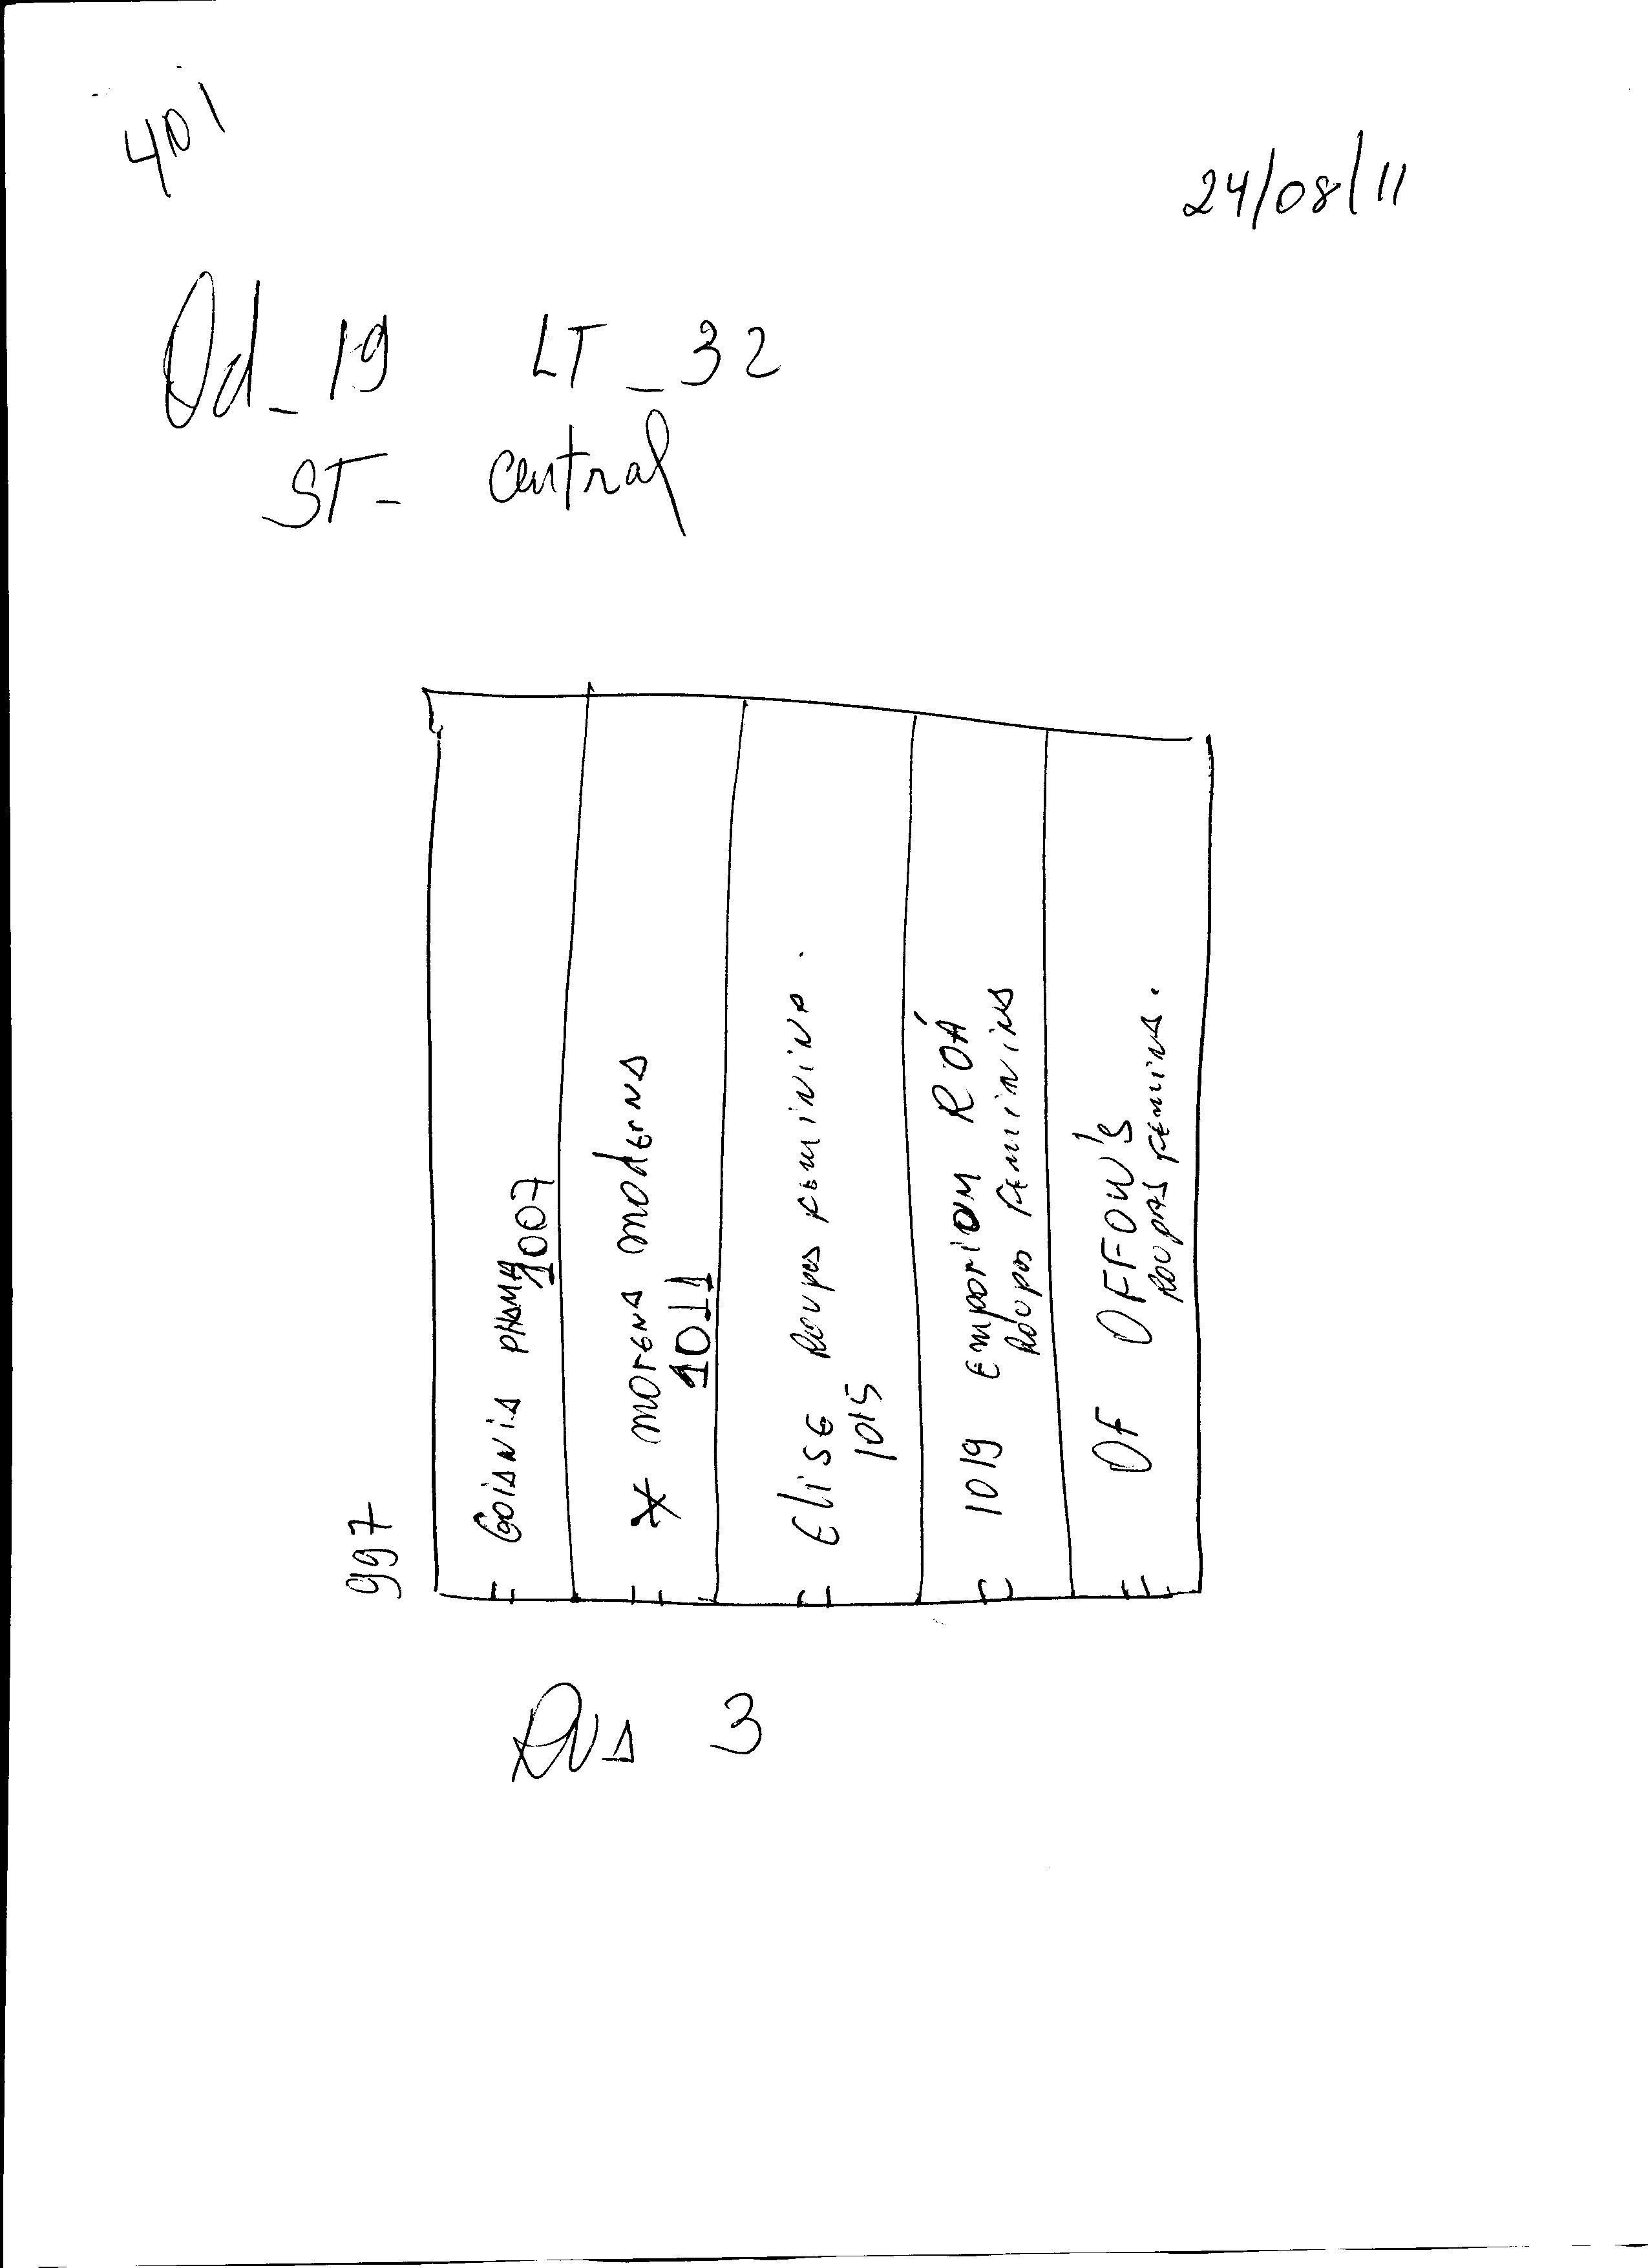 401
24/08/11
Qd_19 LT_32
ST- central
997
Goiania PHAMA
1007
* morena moderna
1011
Elise Roupas feminina.
1015
1019 Emporium ROÁ
Roupas feminina
OF OFFOW's
Roupas feminina.
Rua 3